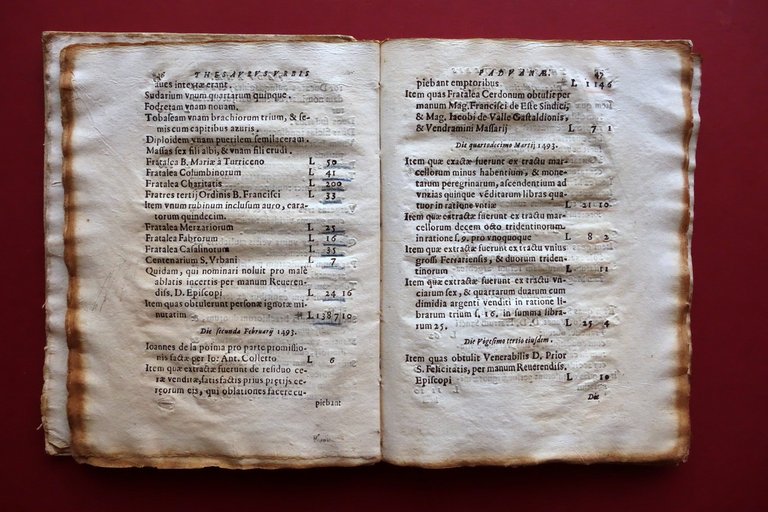 46 THESAVRVS VRBIS
aues intextæ erant.
Sudarium vnum quartarum quinque.
Fodretam vnam nouam.
Tobaleam vnam brachiorum trium, & se-
mis cum capitibus azuris.
Diploidem vnam puerilem semilaceram.
Massas sex fili albi, & vnam fili crudi.
Fratalea B. Mariæ à Turriceno L 50
Fratalea Columbinorum L 41
Fratalea Charitatis L 200
Fratres tertij Ordinis B. Francisci L 33
Item vnum rubinum inclusum auro, cara-
torum quindecim.
Fratalea Merzariorum L 25
Fratalea Fabrorum L 16
Fratalea Casalinorum L 35
Centenarium S. Vrbani L 7
Quidam, qui nominari noluit pro malè
ablatis incertis per manum Reueren-
diss. D. Episcopi L 24 16
Item quas obtulerunt personæ ignotæ mi-
nutatim L 1387 10
Die secunda Februarij 1493.
Ioannes de la posma pro parte promissio-
nis factæ per Io: Ant. Colletto L 6
Item quæ extractæ fuerunt de residuo ce-
ræ venditæ, satisfactis prius pretijs ce-
reorum eis, qui oblationes facere cu-
piebant
PADVANÆ. 47
piebant emptoribus. L 1146
Item quas Fratalea Cerdonum obtulit per
manum Mag. Francisci de Este Sindici,
& Mag. Iacobi de Valle Gastaldionis,
& Vendramini Massarij L 7 1
Die quartodecimo Martij 1493.
Item quæ exactæ fuerunt ex tractu mar-
cellorum minus habentium, & mone-
tarum peregrinarum, ascendentium ad
vntias quinque vēditarum libras qua-
tuor in ratione vntiæ L 21 10
Item quæ extractæ fuerunt ex tractu mar-
cellorum decem octo tridentinorum
in ratione s. 9. pro vnoquoque L 8 2
Item quæ extractæ fuerunt ex tractu vnius
grossi Ferrariensis, & duorum triden-
tinorum L 11
Item quæ extractæ fuerunt ex tractu vn-
ciarum sex, & quartarum duarum cum
dimidia argenti venditi in ratione li-
brarum trium s. 16. in summa libra-
rum 25. L 25 4
Die Vigesimo tertio eiusdem.
Item quas obtulit Venerabilis D. Prior
S. Felicitatis, per manum Reuerendiss.
Episcopi L 10
Die